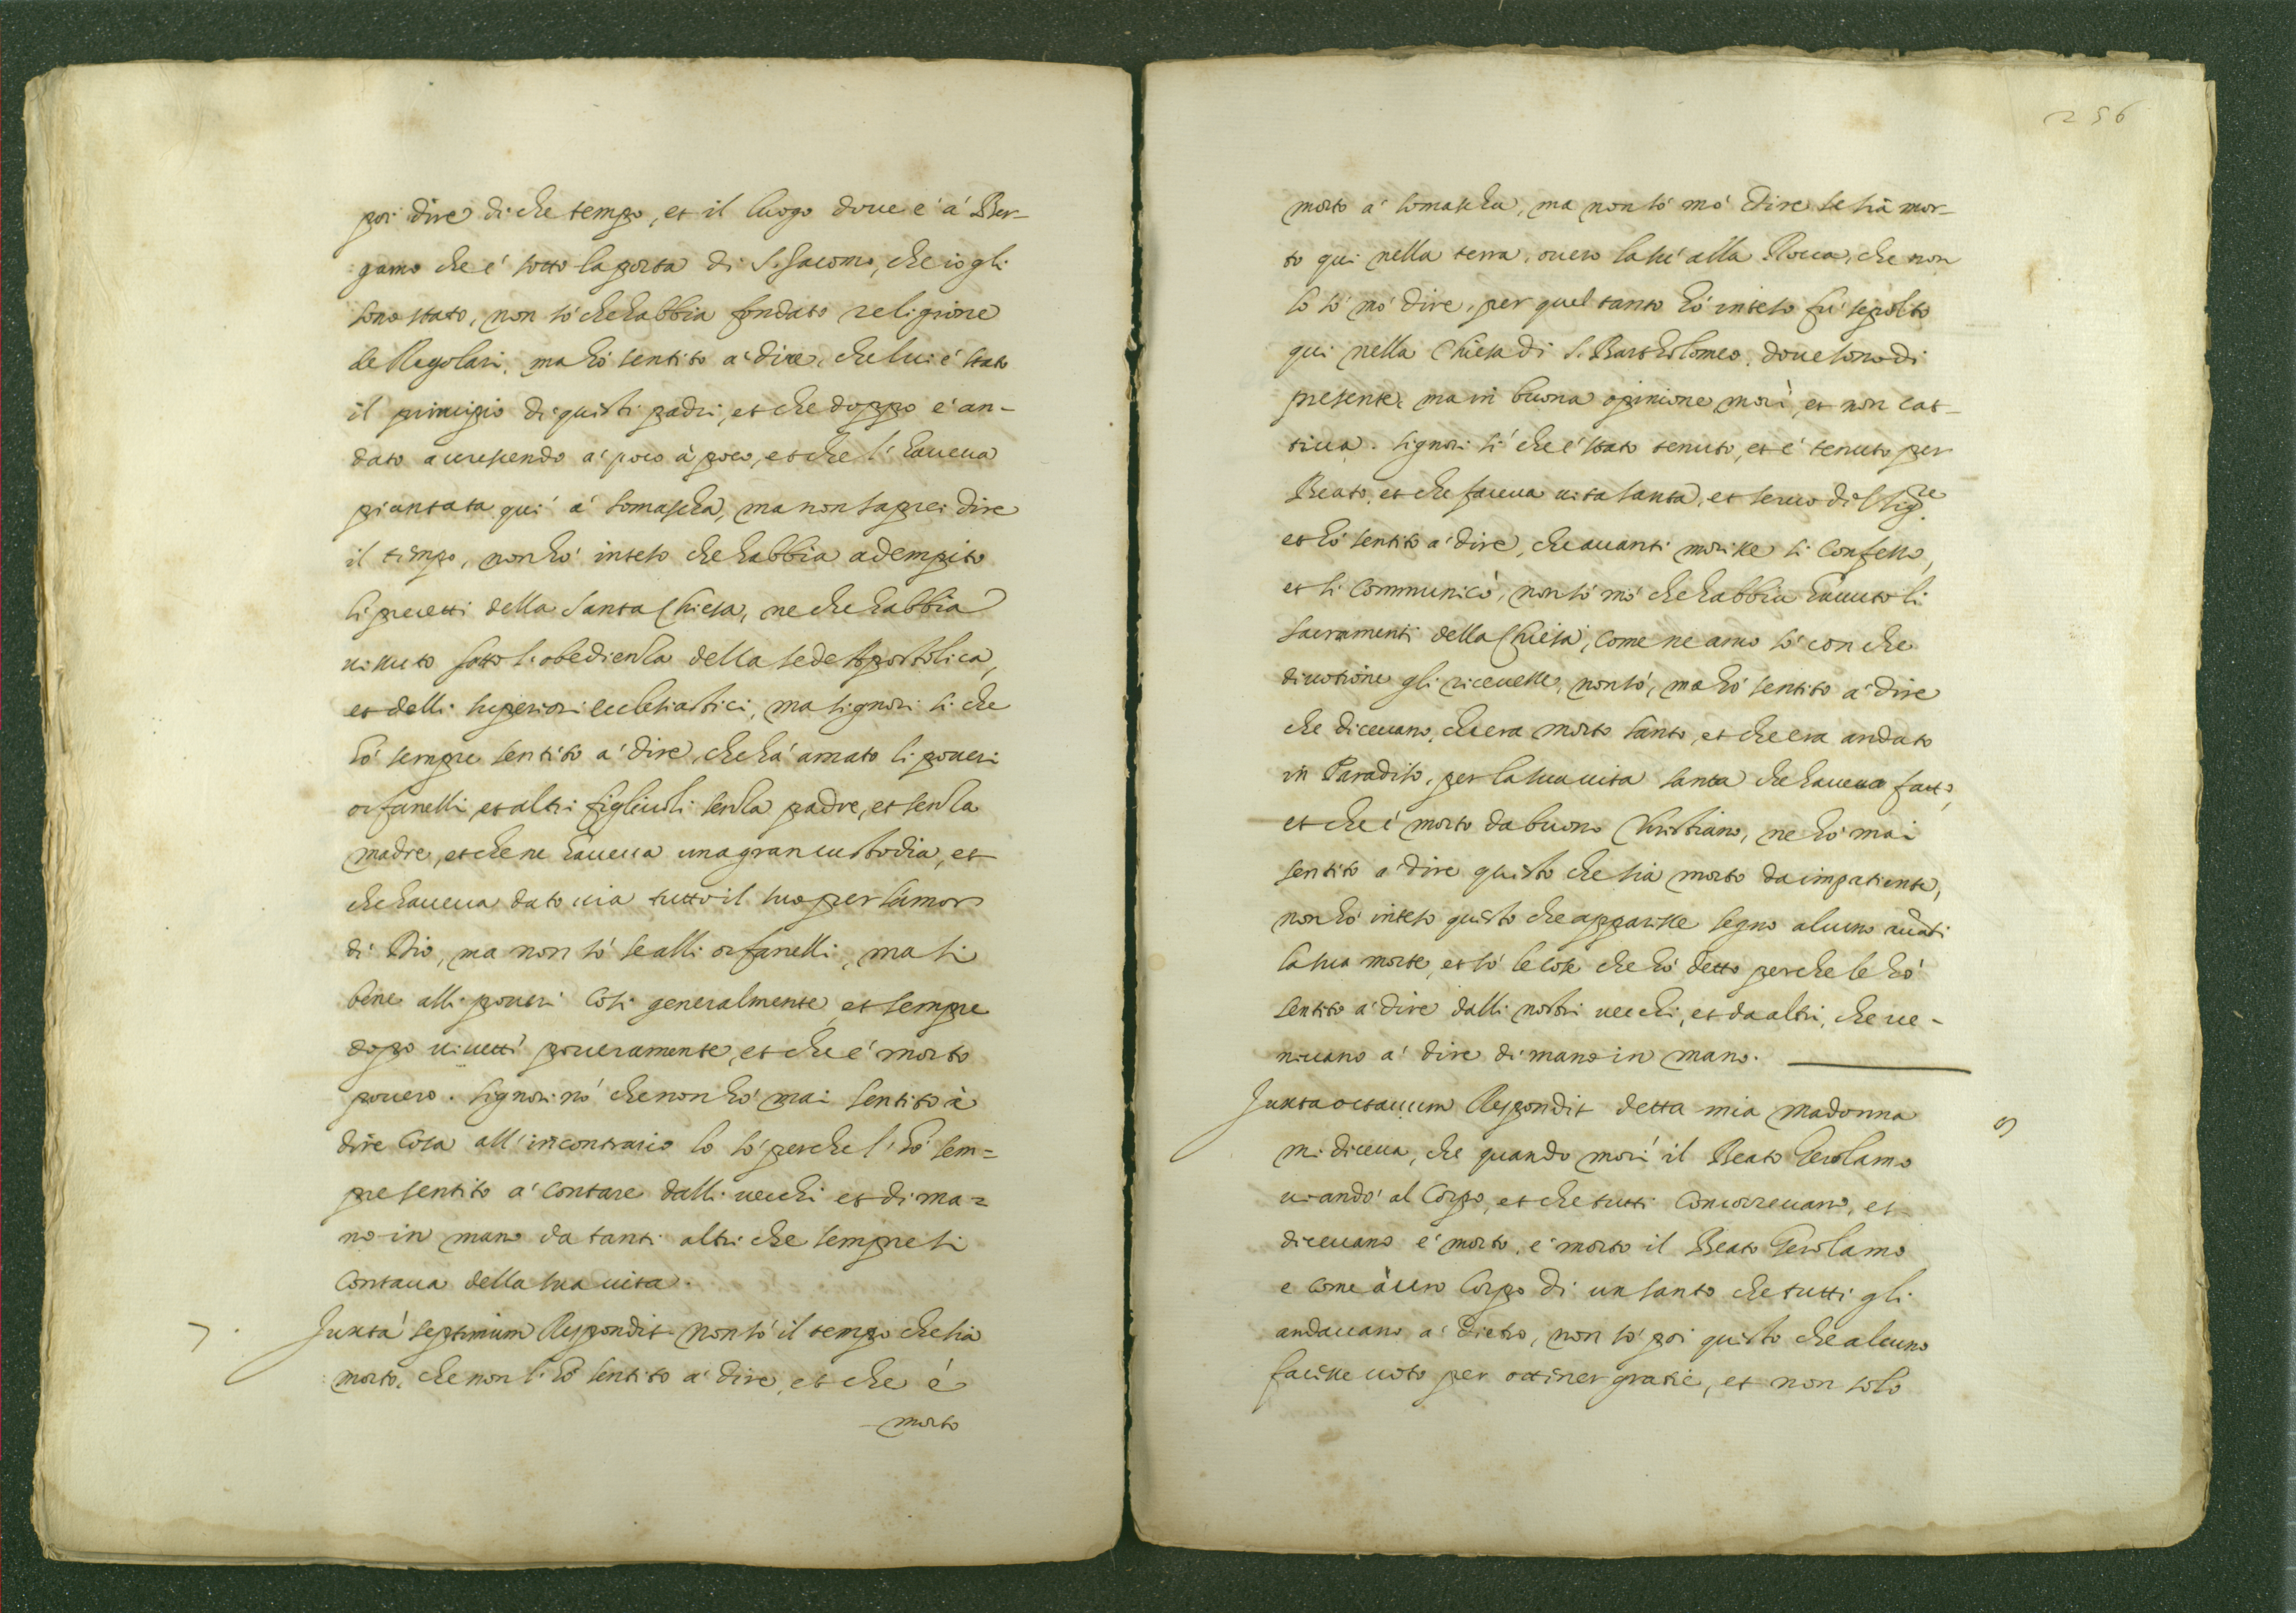 poi dire di che tempo, et il luogo doue e' a' Ber-
gamo che e' sotto la porta di S. Giacomo, che io gli
sono stato, non so' che habbia fondato religione
de Regolari, ma ho' sentito a' dire, che lui e' stato
il principio di questi padri, et che doppo e' an-
dato accrescendo a' poco à poco, et che l'haueua
piantata qui' a' Somascha, ma non saprei dire
il tempo, non ho' inteso che habbia adempito
li precetti della Santa Chiesa, ne che habbia
uissuto sotto l'obedienza della sede Apostolica,
et delli superiori ecclesiastici, ma signori si che
ho' sempre sentito a' dire, che ha' amato li poueri
orfanelli et altri figliuoli senza padre, et senza
madre, et che ne haueua una gran custodia, et
che haueua dato uia tutto il suo per l'amor
di Dio, ma non so' se alli orfanelli, ma si
bene alli poueri cosi generalmente, et sempre
dopo uiuetti poueramente, et che e' morto
pouero. signori no' che non ho' mai sentito à
dire cosa all'incontrario lo so' perche l'ho' sem=
pre sentito a' contare dalli uecchi et di ma=
no in mano da tanti altri che sempre si
contaua della sua uita.
7. Juxta' septimum Respondit non so' il tempo che sia
morto, che non l'ho' sentito a' dire, et che è
morto
256
morto a' Somascha, ma non so' mo' dire se sia mor-
to qui nella terra, ouero la su' alla Rocca, che non
lo so' mo' dire, per quel tanto ho' inteso fu' sepolto
qui nella Chiesa di S. Bartholomeo, doue sono di
presente, ma in buona opinione morì, et non cat-
tiua. signori si' che e' stato tenuto, et e' tenuto per
Beato, et che faceua uita santa, et seruo del Sig.re
et ho' sentito a' dire, che auanti morisse si confesso,
et si communicò, non so' mo' che habbia hauuto li
sacramenti della Chiesa, come ne anco so' con che
diuotione gli riceuesse, non so', ma ho' sentito a' dire
che diceuano, che era morto santo, et che era andato
in Paradiso, per la sua uita santa che haueua fatto,
et che e' morto da buono Christiano, ne ho' mai
sentito a' dire questo che sia morto da impatiente,
non ho' inteso questo che apparisse segno alcuno auāti
la sua morte, et so' le cose che ho' detto perche le ho'
sentito a' dire dalli nostri uecchi, et da altri, che ue-
niuano a' dire di mano in mano.
Juxta octauum Respondit detta mia madonna
mi diceua, che quando mori' il Beato Gerolamo
ui ando' al Corpo, et che tutti concorreuano, et
diceuano e' morto, e' morto il Beato Gerolamo
e come à uero Corpo di un santo che tutti gli
andauano a' dietro, non so' poi questo che alcuno
facesse uoto per ottiner gratie, et non solo